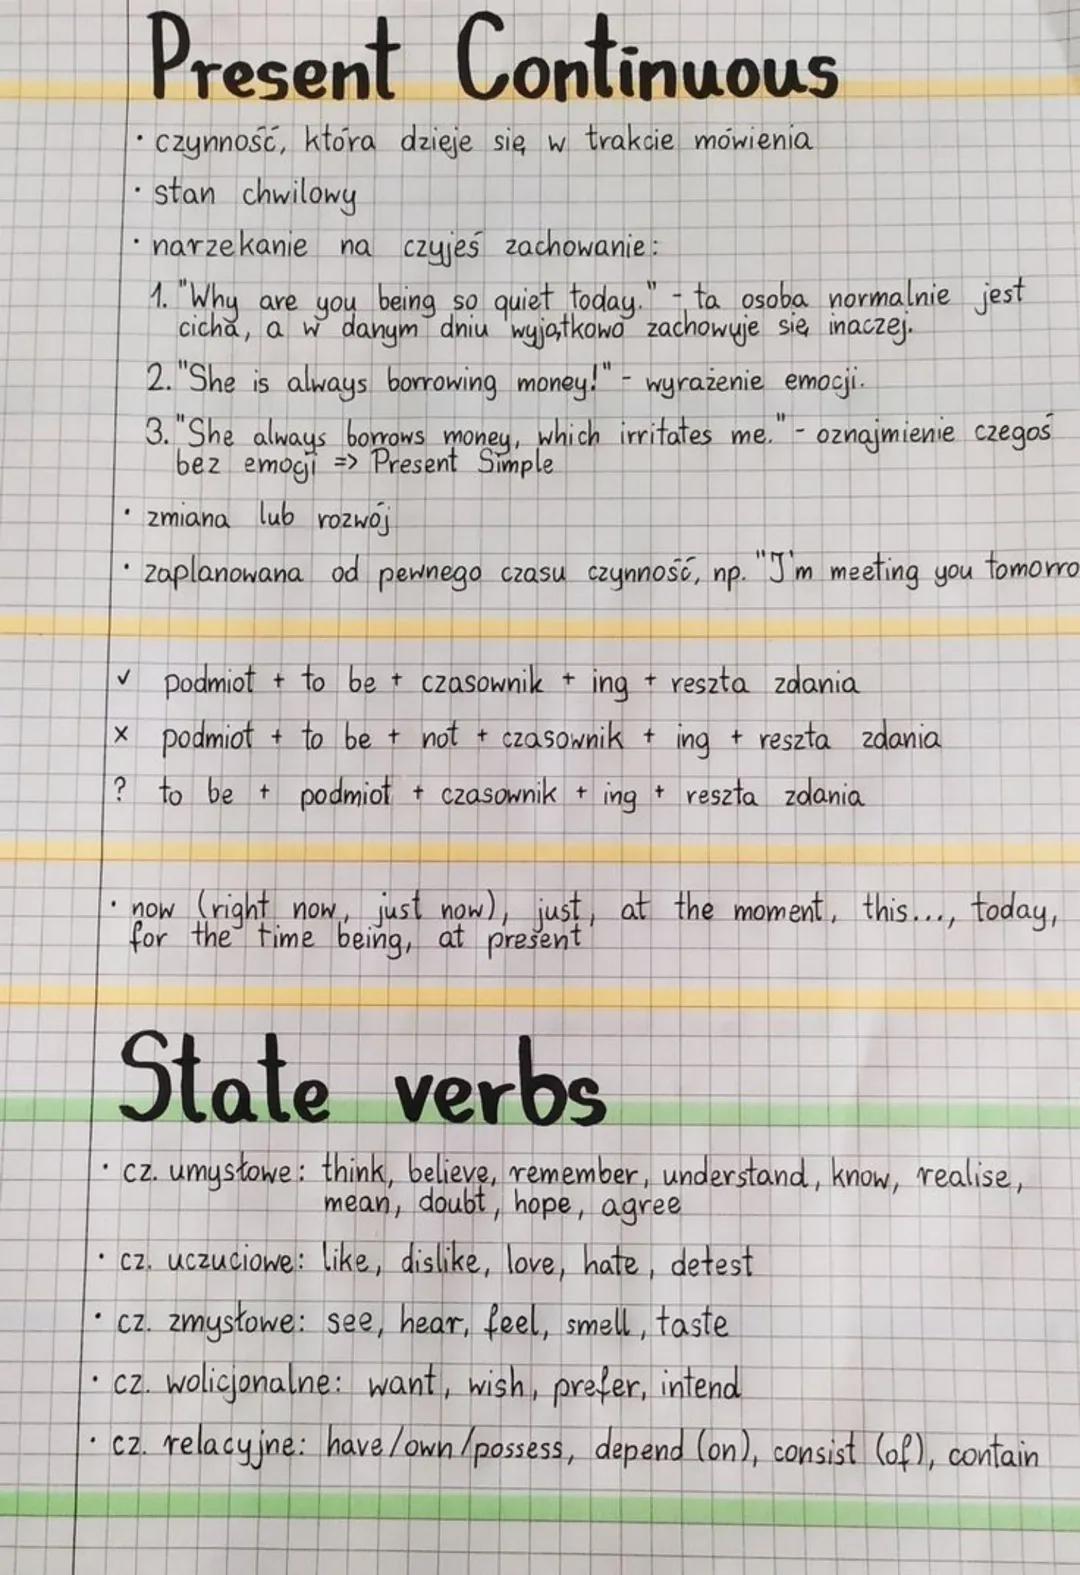 Present Continuous
· czynność, która dzieje się w trakcie mówienia
· stan chwilowy
· narzekanie na czyjeś zachowanie:
1. "Why are you being so quiet today." - ta osoba normalnie jest
cicha, a w danym dniu wyjątkowo zachowuje się inaczej.
2. "She is always borrowing money!" - wyrażenie emocji.
3. "She always borrows money, which irritates me." - oznajmienie czegoś
bez emocji => Present Simple
· zmiana lub rozwój
· zaplanowana od pewnego czasu czynność, np. "I'm meeting you tomorro
✓ podmiot + to be + czasownik + ing + reszta zdania
x podmiot + to be + not + czasownik + ing + reszta zdania
? to be + podmiot + czasownik + ing + reszta zdania
· now (right now, just now), just, at the moment, this..., today,
for the time being, at present
State verbs
· cz. umysłowe: think, believe, remember, understand, know, realise,
mean, doubt, hope, agree
· cz. uczuciowe: like, dislike, love, hate, detest
· cz. zmysłowe: see, hear, feel, smell, taste
· cz. wolicjonalne: want, wish, prefer, intend
· cz. relacyjne: have/own/possess, depend (on), consist (of), contain